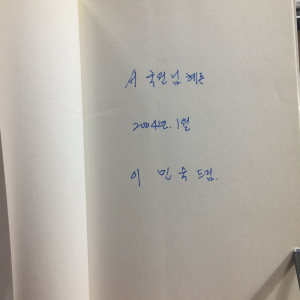 서 국원님 혜존
2004년. 1월
이 민욱 드림.